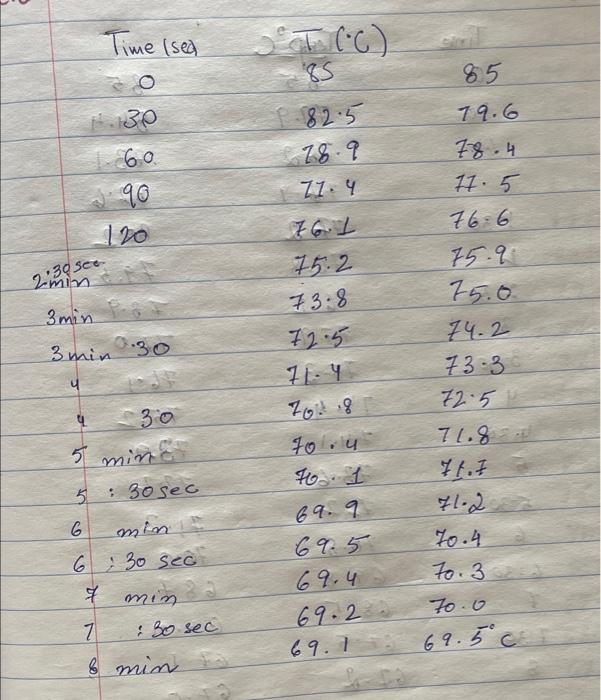 Time (sec) T (°C)
0 85 85
30 82.5 79.6
60 78.9 78.4
90 77.4 77.5
120 76.1 76.6
2:30 sec min 75.2 75.9
3min 73.8 75.0
3min :30 72.5 74.2
4 71.4 73.3
4 30 70.8 72.5
5 min 70.4 71.8
5 : 30sec 70.1 71.7
6 min 69.9 71.2
6 : 30 sec 69.5 70.4
7 min 69.4 70.3
7 : 30 sec 69.2 70.0
8 min 69.1 69.5°C